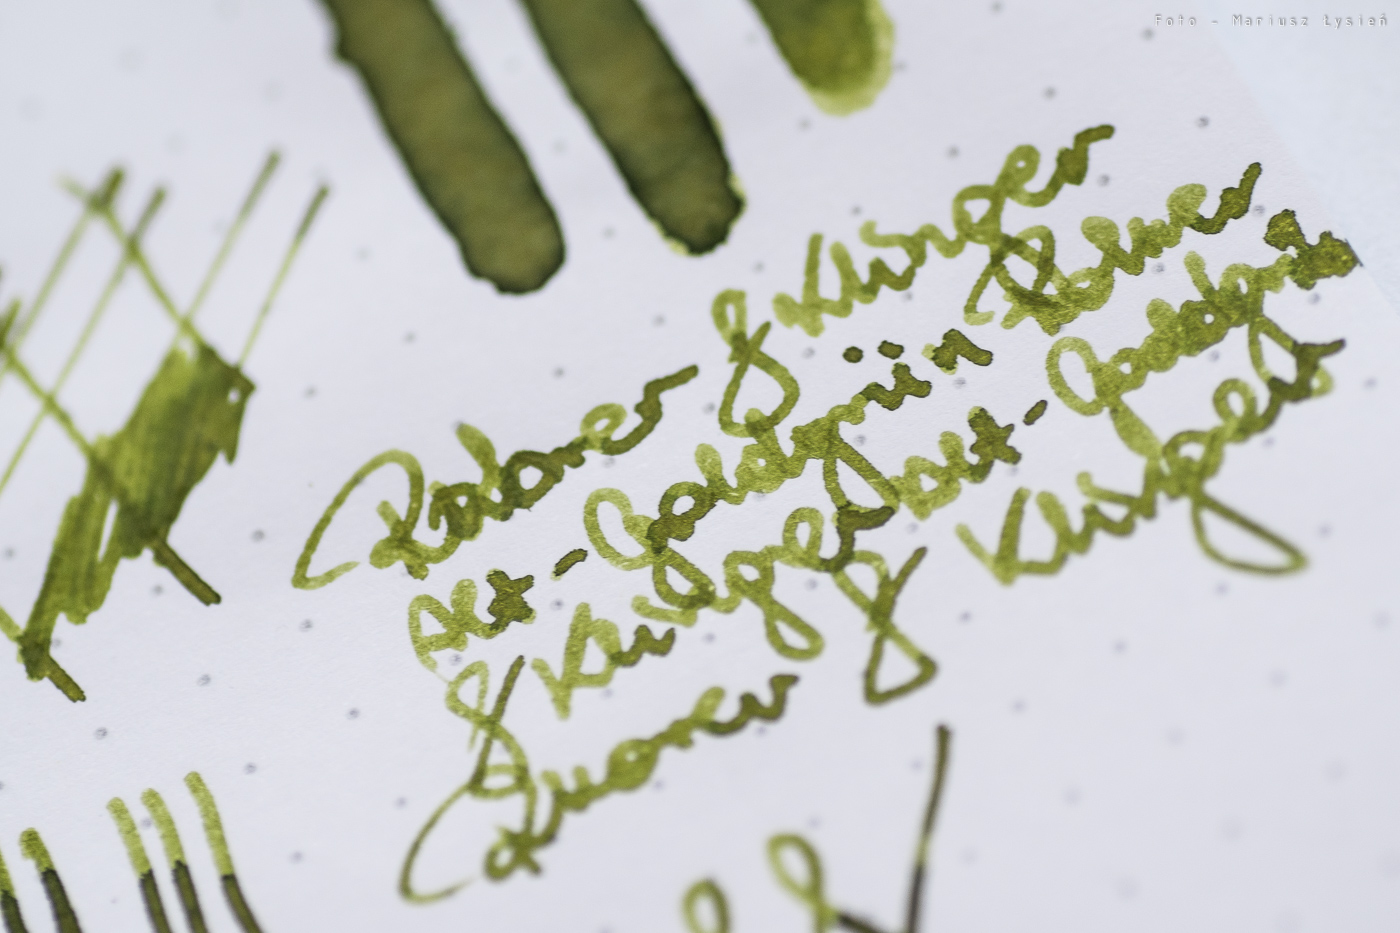 Foto - Mariusz Łysień
Rohrer & Klingner
Alt-Goldgrün Rohrer
& Klingner Alt-Goldgrün
Rohrer & Klingner